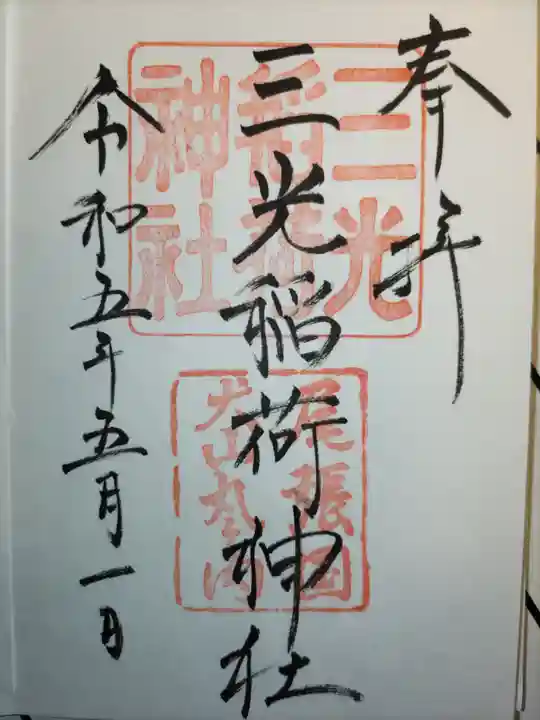 奉拝
三光稲荷神社
令和五年五月一日
三光
稲荷
神社
尾張国
犬山丸の内